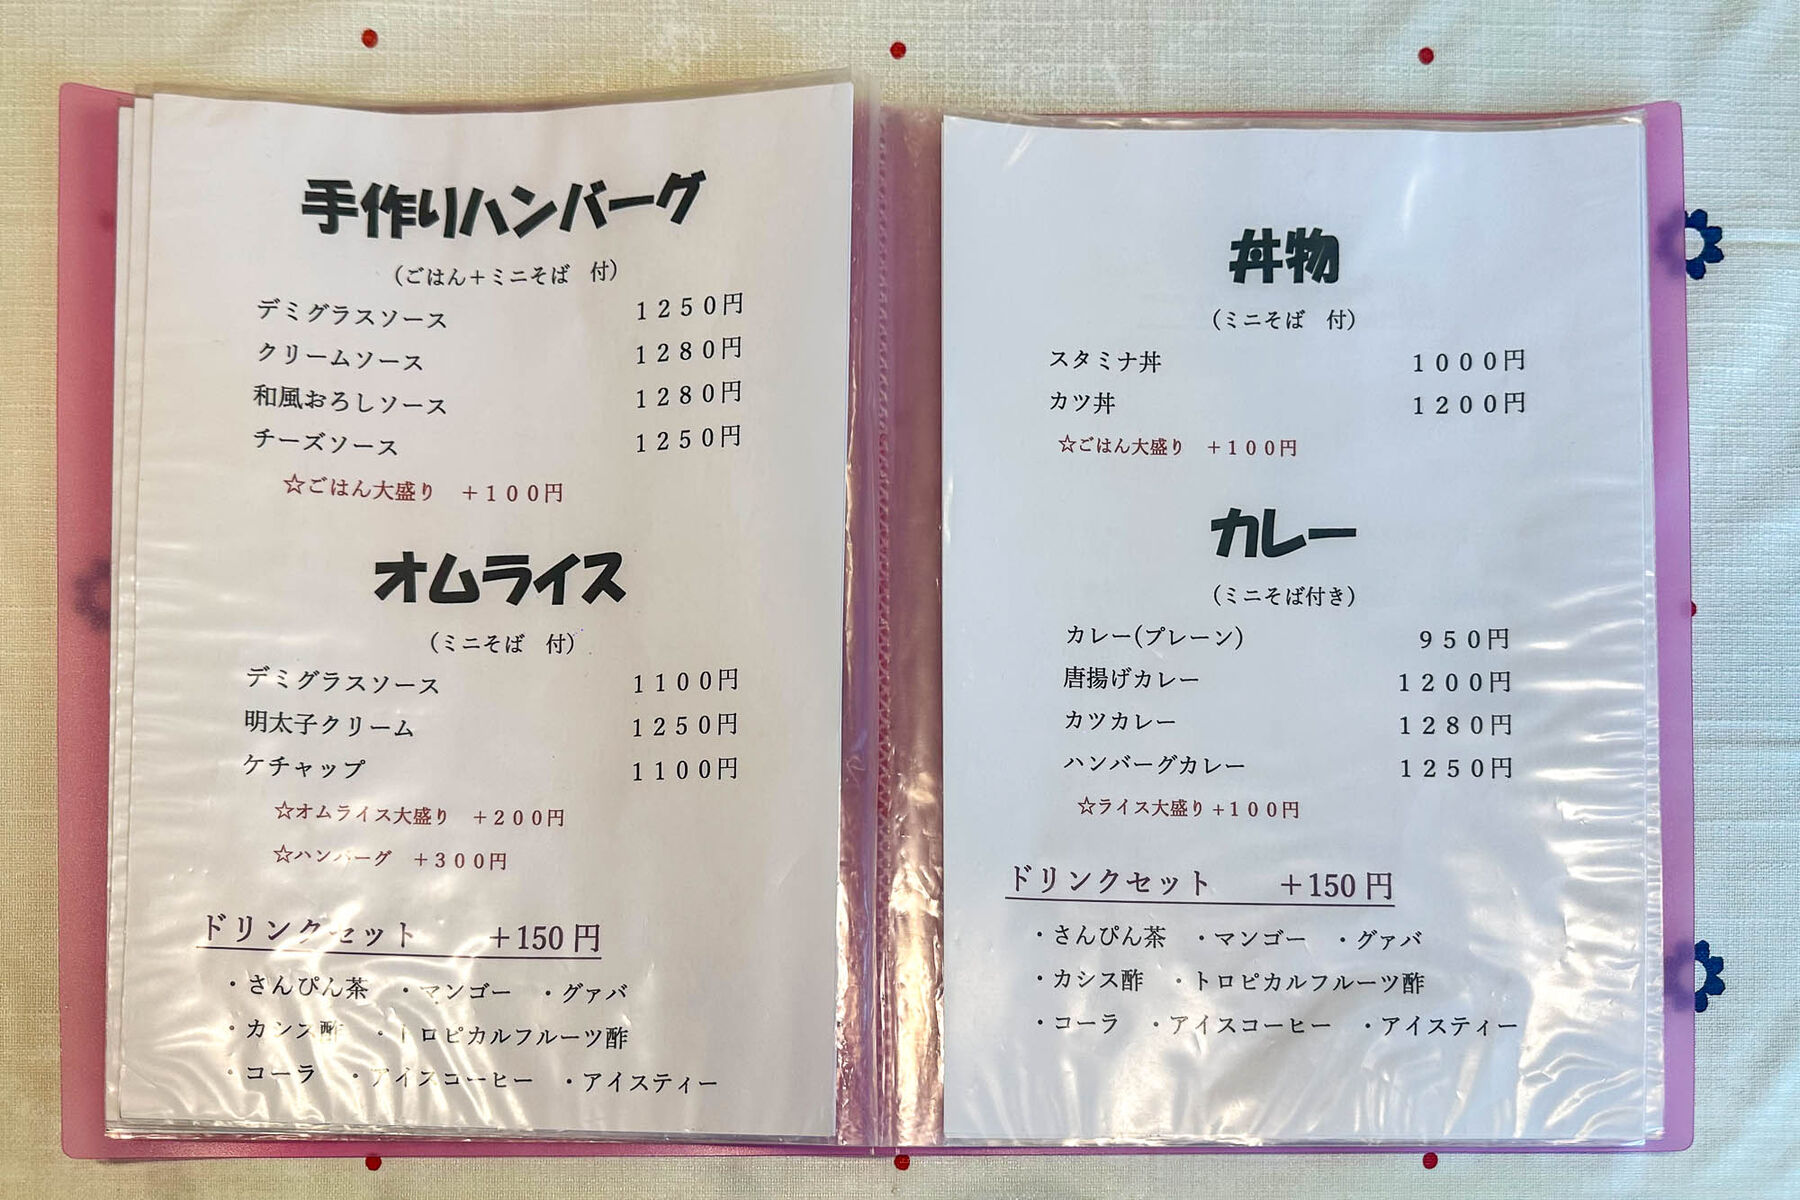 手作りハンバーグ
(ごはん+ミニそば 付)
デミグラスソース 1250円
クリームソース 1280円
和風おろしソース 1280円
チーズソース 1250円
☆ごはん大盛り +100円
オムライス
(ミニそば 付)
デミグラスソース 1100円
明太子クリーム 1250円
ケチャップ 1100円
☆オムライス大盛り +200円
☆ハンバーグ +300円
ドリンクセット +150円
・さんぴん茶 ・マンゴー ・グァバ
・カシス酢 ・トロピカルフルーツ酢
・コーラ ・アイスコーヒー ・アイスティー
丼物
(ミニそば 付)
スタミナ丼 1000円
カツ丼 1200円
☆ごはん大盛り +100円
カレー
(ミニそば付き)
カレー(プレーン) 950円
唐揚げカレー 1200円
カツカレー 1280円
ハンバーグカレー 1250円
☆ライス大盛り+100円
ドリンクセット +150円
・さんぴん茶 ・マンゴー ・グァバ
・カシス酢 ・トロピカルフルーツ酢
・コーラ ・アイスコーヒー ・アイスティー